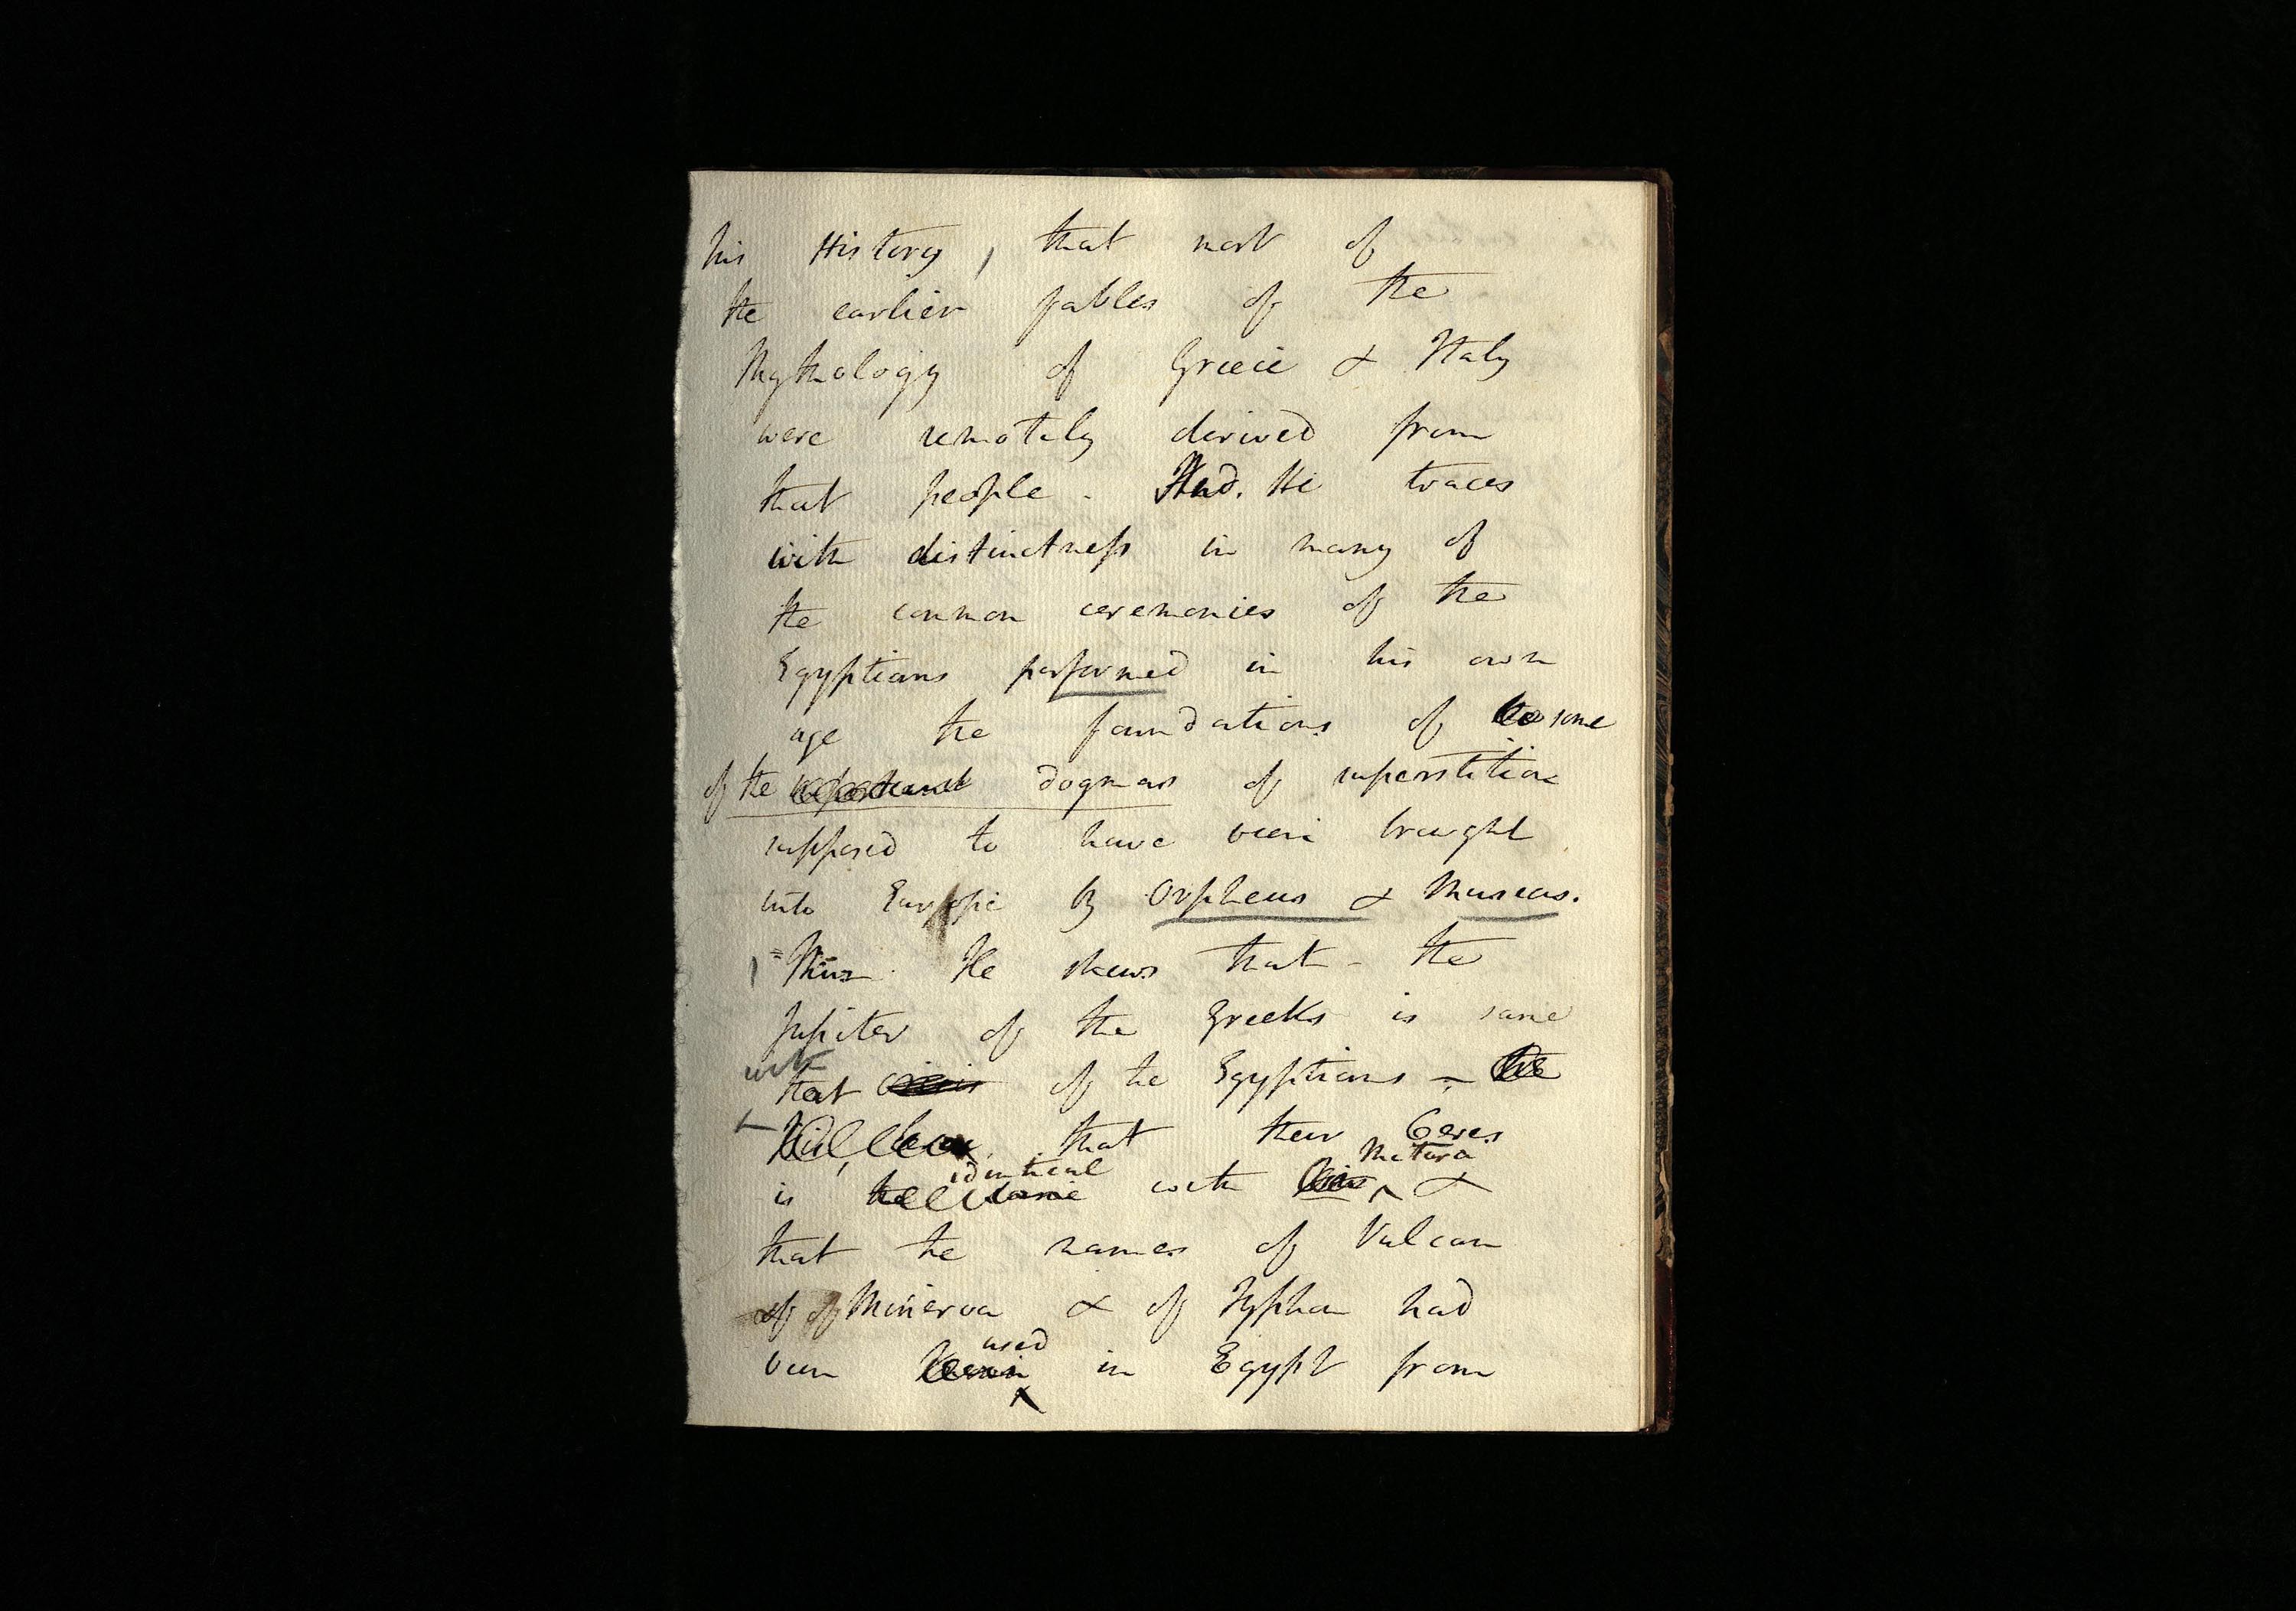 his History, that most of
the earlier fables of the
Mythology of Greece & Italy
were remotely derived from
that people - And. He traces
with distinctness in many of
the common ceremonies of the
Egyptians performed in his own
age the foundations of some
of the important dogmas of superstition
supposed to have been brought
into Europe by Orpheus & Museus.
Thus He shews that - the
Jupiter of the Greeks is same
with
that of the Egyptians -
that their Ceres
identical Natura
is the same with &
that the names of Vulcan
of of Minerva & of Typhon had
used
been in Egypt from